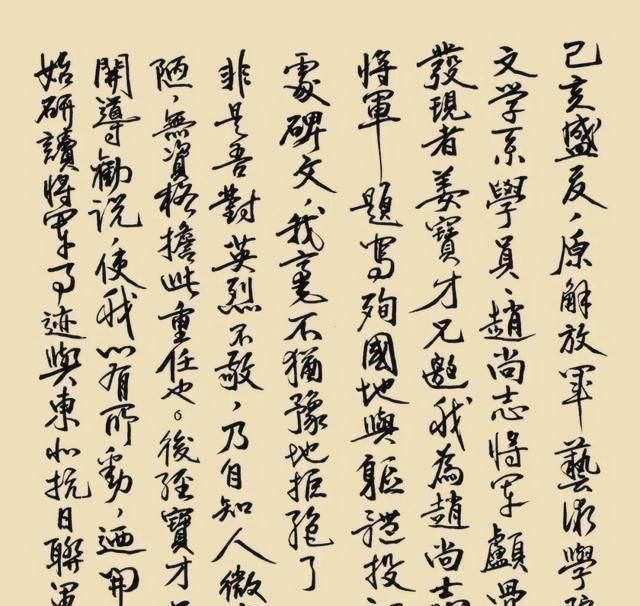 己亥盛夏，原解放軍藝術學院
文学系學員、趙尚志將軍顱骨
發現者姜寶才兄邀我為趙尚志
將軍題寫殉國地與軀體投
處碑文，我毫不猶豫地拒絕了
非是吾對英烈不敬，乃自知人微
陋，無資格擔此重任也。後經寶才
開導勸說，使我心有所動，迺開
始研讀將軍事迹與東北抗日聯軍